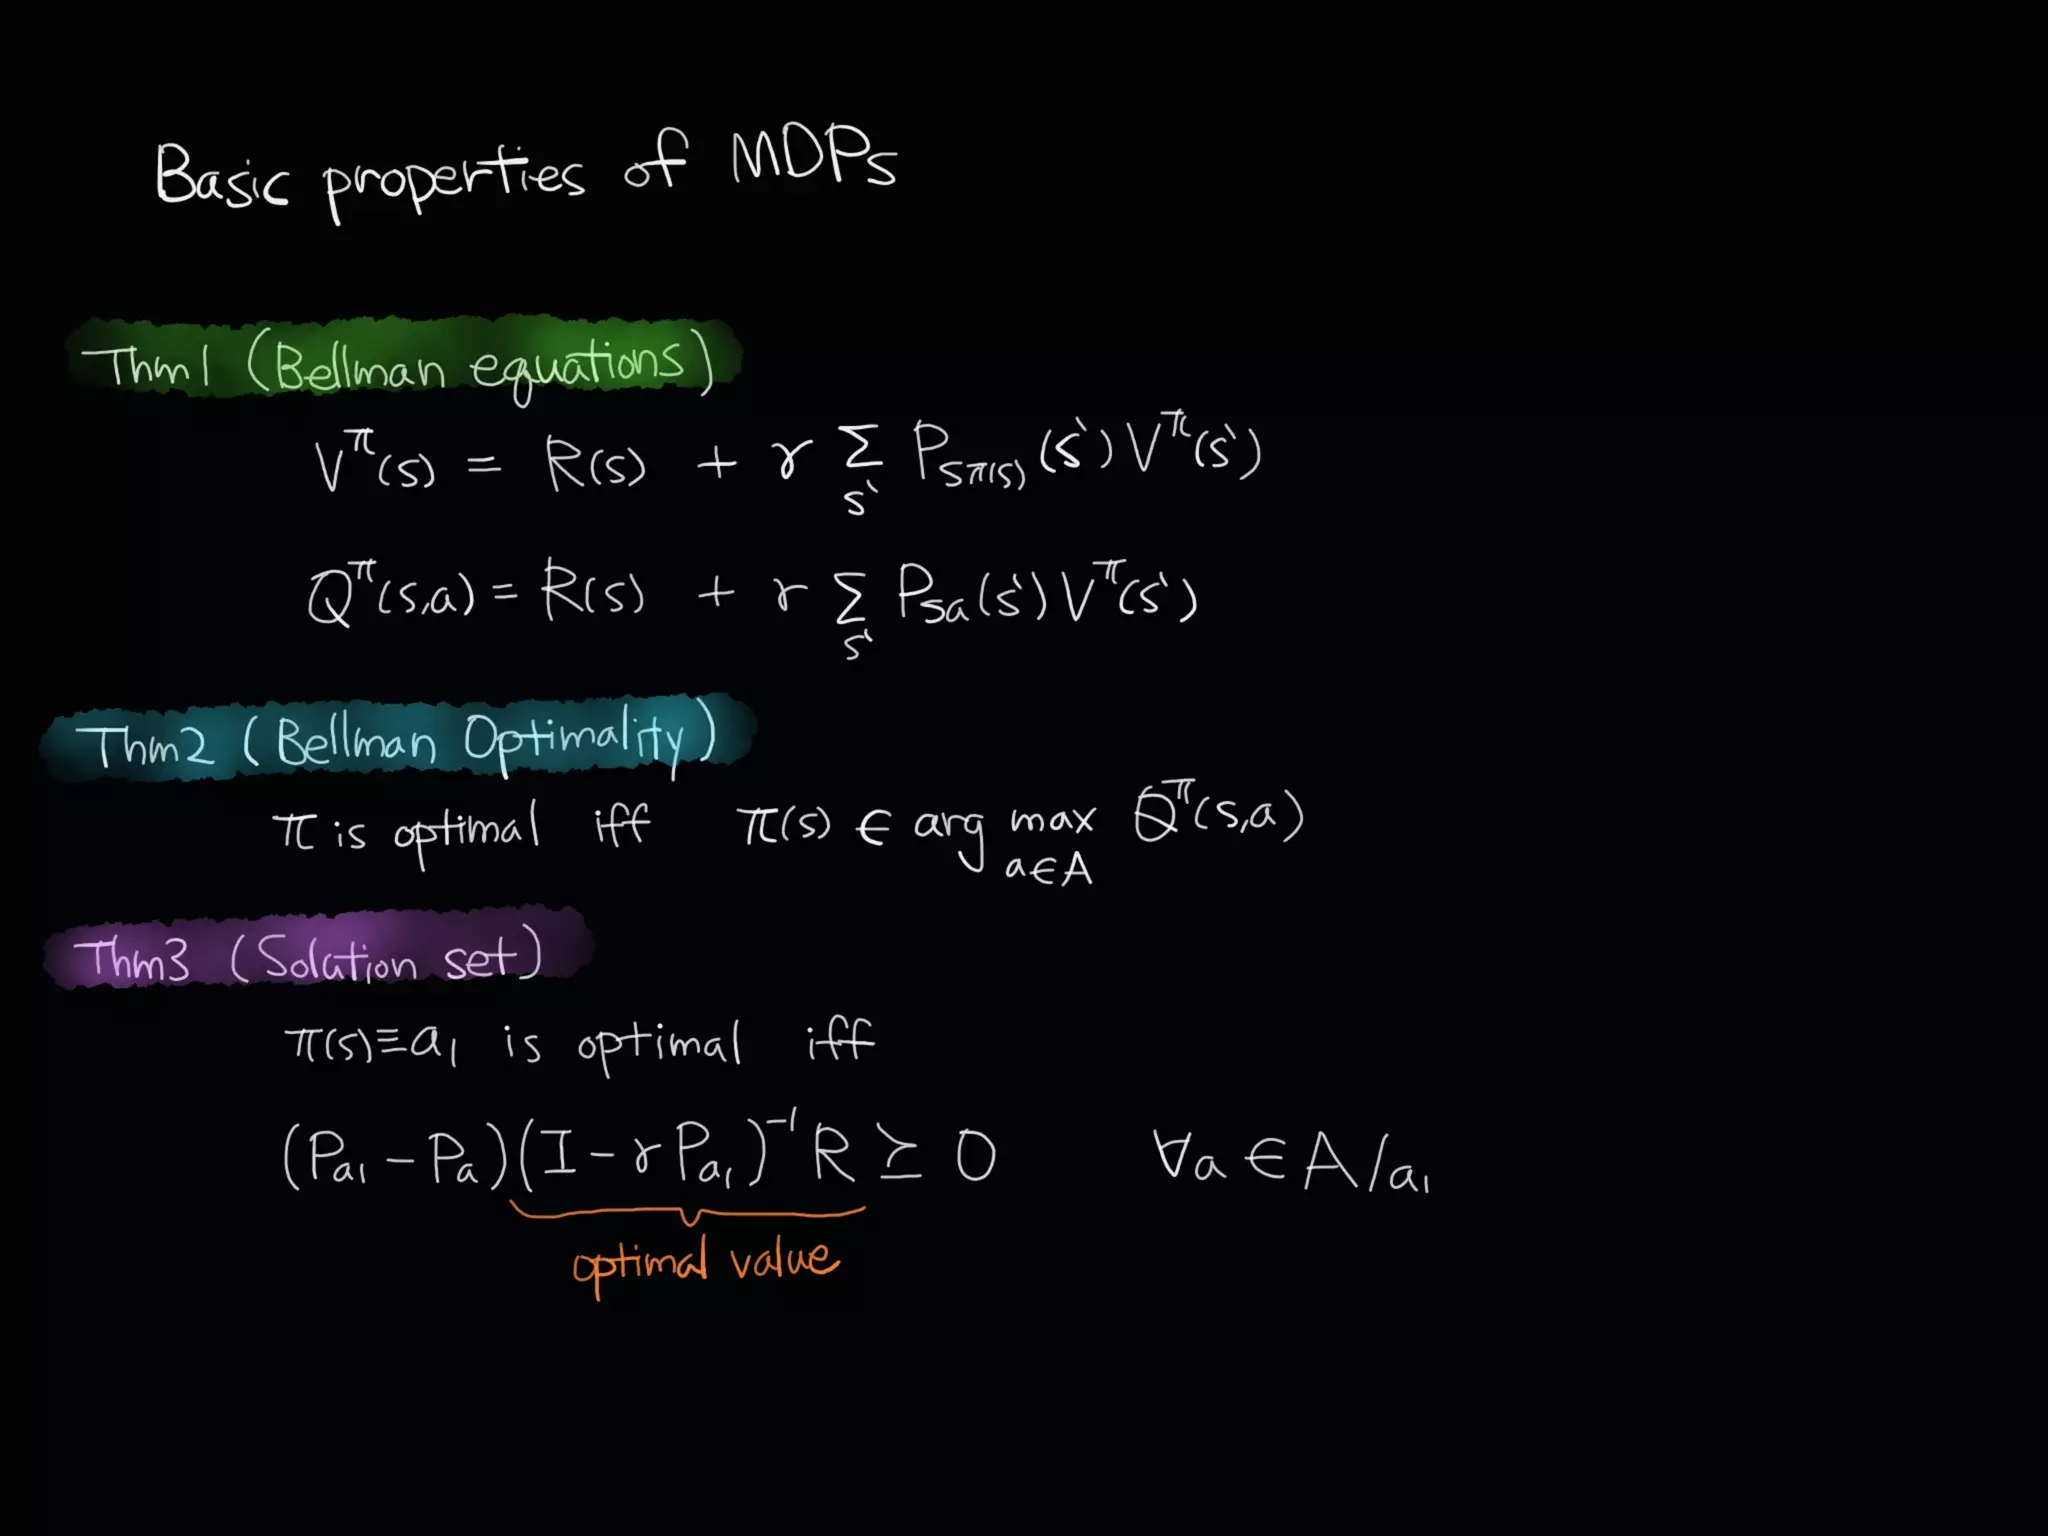 Basic properties of MDPs
Thm1 (Bellman equations)
V^π(s) = R(s) + γ Σ_{s`} P_{sπ(s)}(s`) V^π(s`)
Q^π(s,a) = R(s) + γ Σ_{s`} P_{sa}(s`) V^π(s`)
Thm2 (Bellman Optimality)
π is optimal iff π(s) ∈ arg max_{a∈A} Q^π(s,a)
Thm3 (Solution set)
π(s)≡a₁ is optimal iff
(P_{a₁} − P_a)(I − γP_{a₁})^{-1} R ⪰ 0 ∀a ∈ A/a₁
optimal value